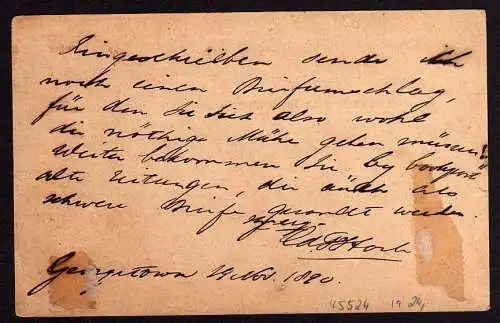 Eingeschrieben sende ich
noch einen Briefumschlag,
für den Sie sich also wohl
die nöthige Mühe geben müssen!
Weiter bekommen Sie by bookpost
alte Zeitungen, die auch als
schwere Briefe gesandt werden
Georgetown 14 Nov. 1890.
45524 19 24,